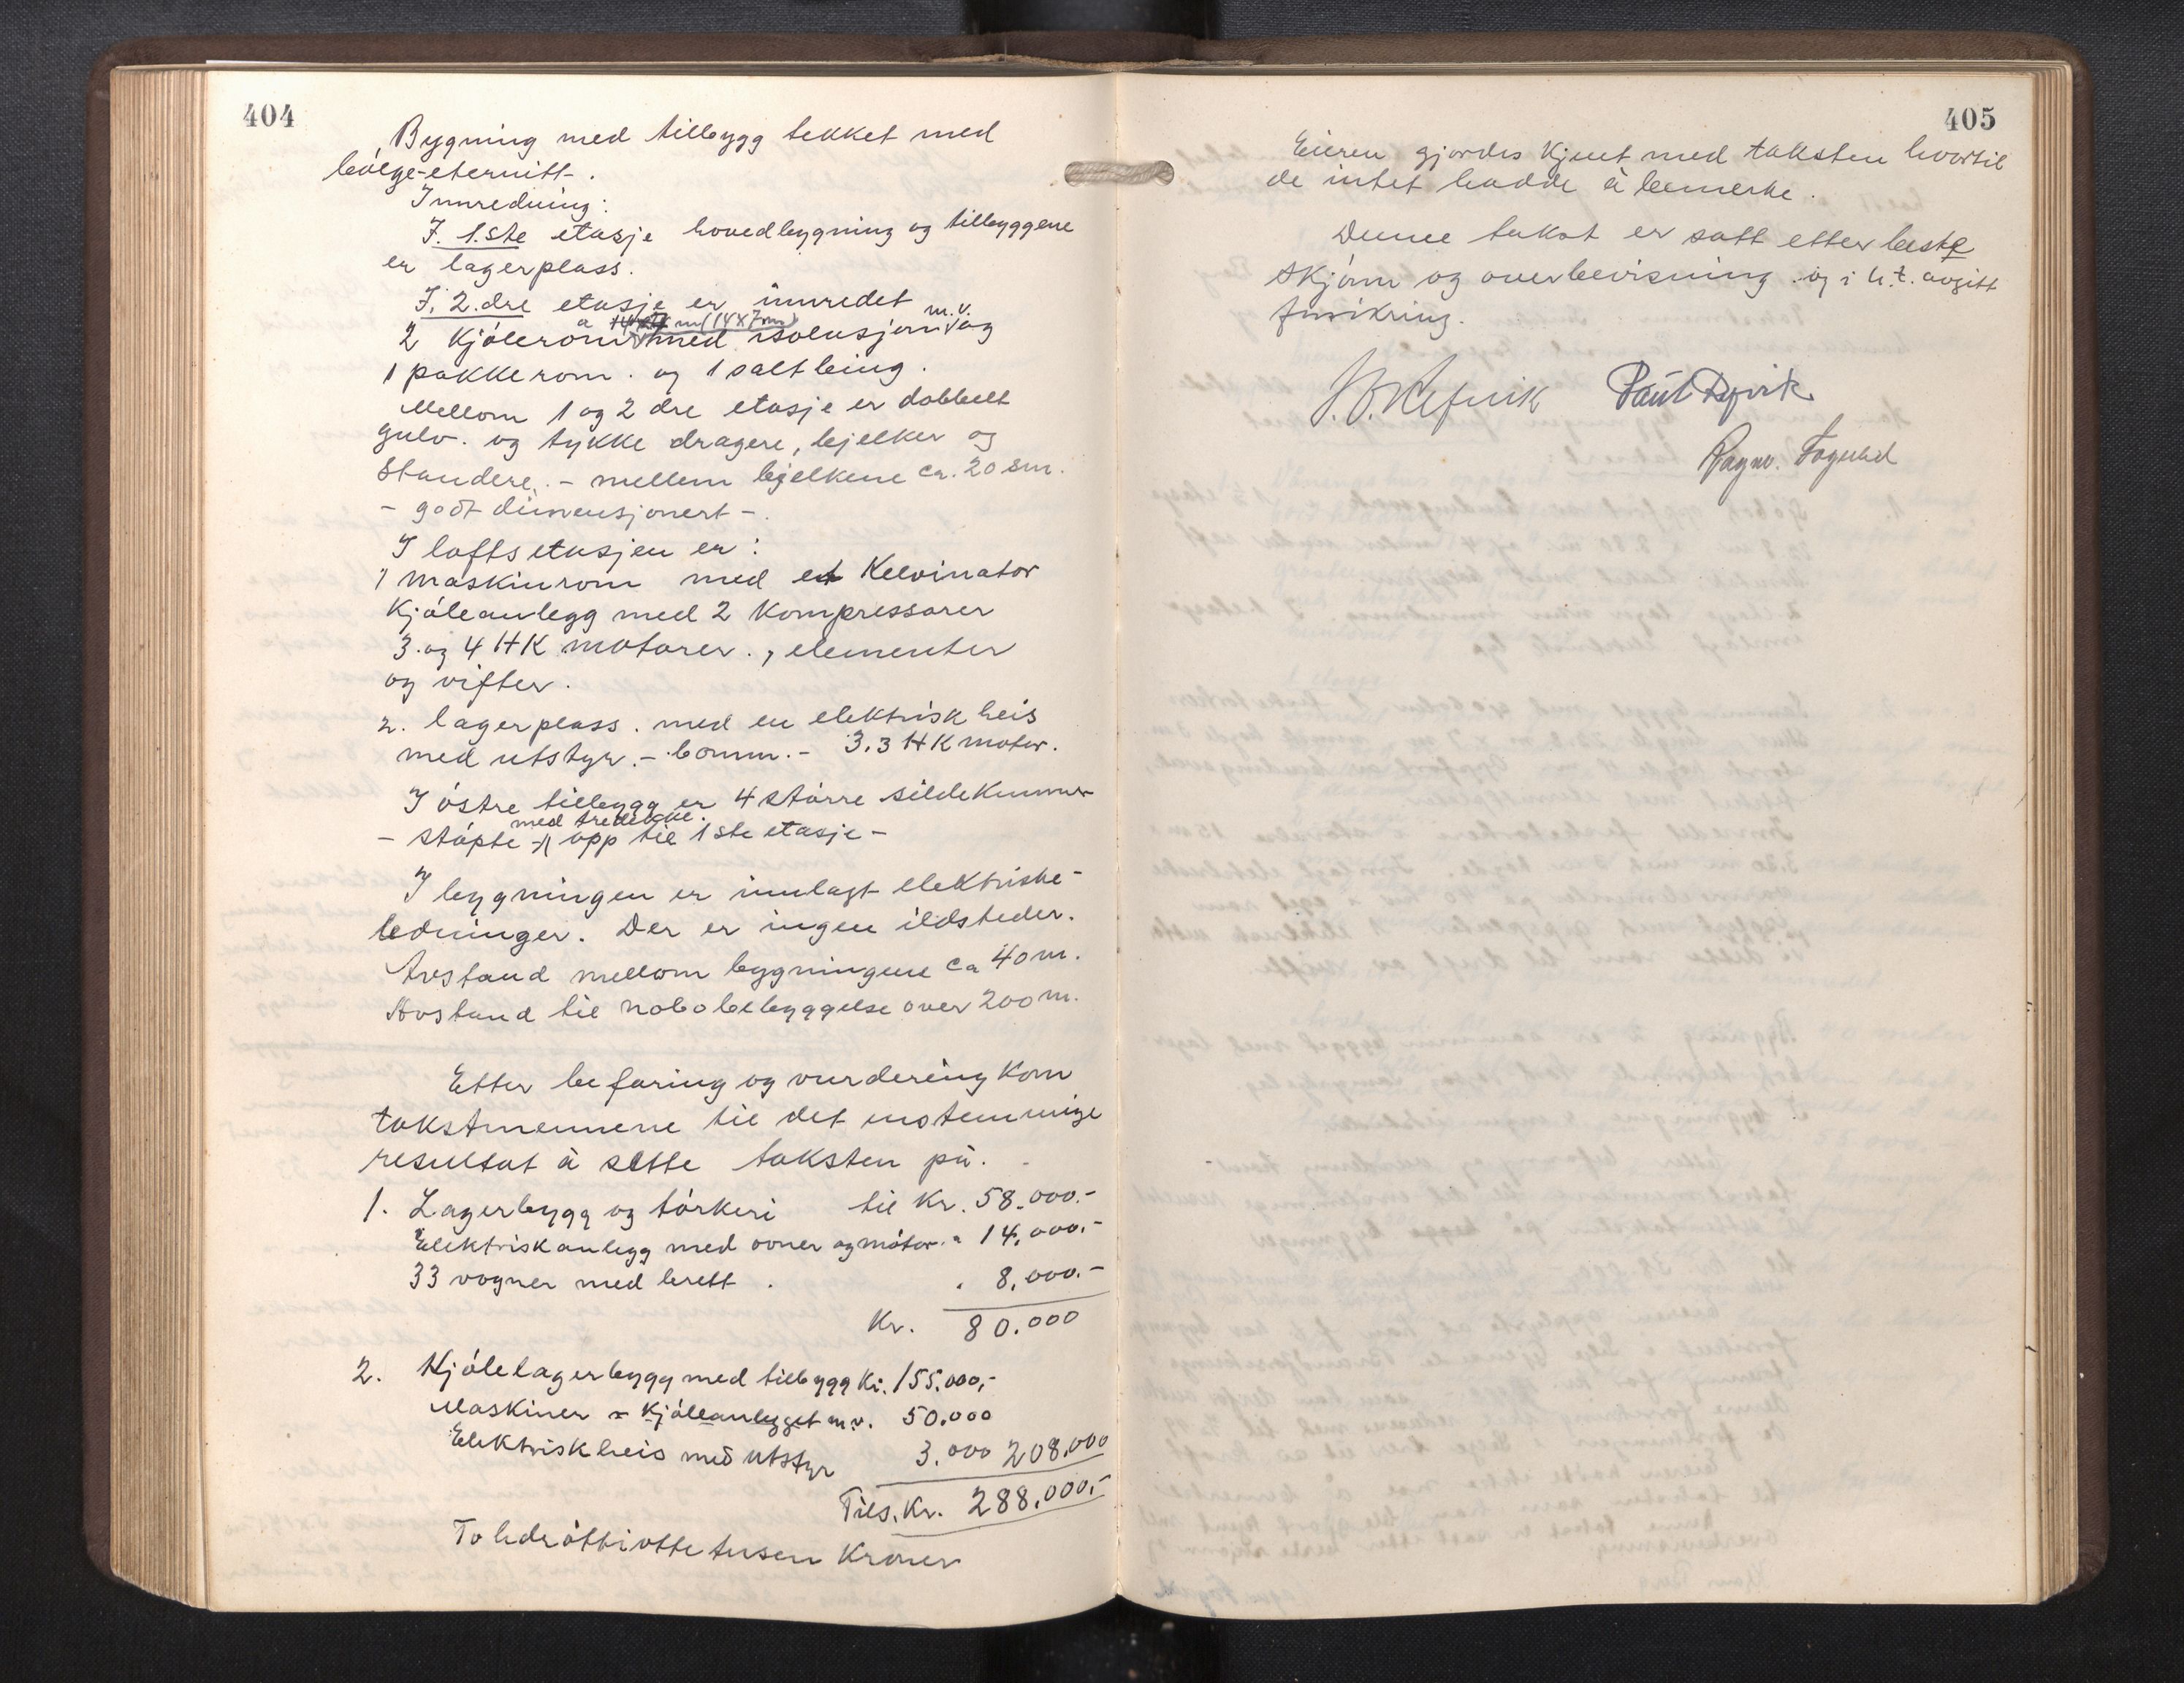 404
Bygning med tilbygg tekket med
bølge-eternitt.
Innredning:
I. 1.ste etasje hovedbygning og tilbyggene
er lagerplass.
I. 2.dre etasje er innredet
2 Kjølerom a (14x7m) med isolasjon m.v. og
1 pakkerom. og 1 saltbing.
Mellom 1 og 2 dre etasje er dobbelt
gulv. og tykke dragere, bjelker og
Standere. - mellem bjelkene ca. 20 sm.
- godt dimensjonert -.
I loftsetasjen er:
1 maskinrom med et Kelvinator
Kjøleanlegg med 2 Kompressorer
3. og 4 HK motorer., elementer
og vifter.
2. lagerplass. med en elektrisk heis
med utstyr. - bomm. - 3.3 HK motor.
I østre tilbygg er 4 større sildekummer
- støpte - med tredekke. opp til 1ste etasje -
I bygningen er innlagt elektriske-
ledninger. Der er ingen ildsteder.
Avstand mellom bygningene ca 40 m.
Avstand til nabobebyggelse over 200 m.
Etter befaring og vurdering kom
takstmennene til det enstemmige
resultat å sette taksten på.
1. Lagerbygg og tørkeri til Kr. 58.000.-
Elektriskanlegg med ovner og motor. " 14.000.-
33 vogner med brett . . 8.000.-
Kr. 80.000
2. Kjølelagerbygg med tilbygg Kr. 155.000,-
Maskiner - Kjøleanlegget m.v. 50.000
Elektriskheis med utstyr 3.000 208.000
Tils. Kr. 288.000,-
To hdr åttiotte tusen Kroner
405
Eieren gjordes Kjent med taksten hvortil
de intet hadde å bemerke.
Denne takst er satt etter beste
skjønn og overbevisning. og i h.t. avgitt
forsikring.
Ragnv. Fogstad